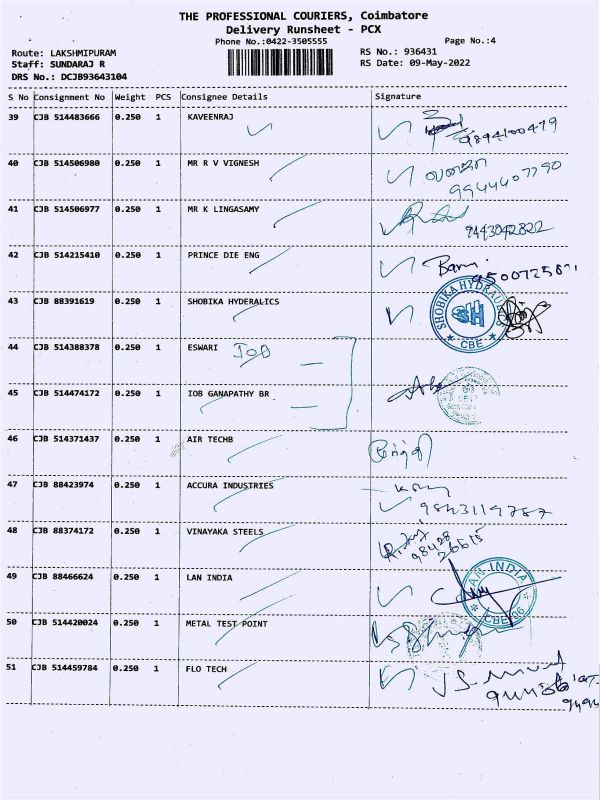 THE PROFESSIONAL COURIERS, Coimbatore
Delivery Runsheet - PCX
Phone No.:0422-3505555 Page No.:4
Route: LAKSHMIPURAM RS No.: 936431
Staff: SUNDARAJ R RS Date: 09-May-2022
DRS No.: DCJB93643104
S No Consignment No Weight PCS Consignee Details Signature
39 CJB 514483666 0.250 1 KAVEENRAJ
9894100479
40 CJB 514506980 0.250 1 MR R V VIGNESH
9944407790
41 CJB 514506977 0.250 1 MR K LINGASAMY
9443042822
42 CJB 514215410 0.250 1 PRINCE DIE ENG
43 CJB 88391619 0.250 1 SHOBIKA HYDERALICS
SHOBIKA HYDRAULICS
SH
CBE
44 CJB 514388378 0.250 1 ESWARI IOB
45 CJB 514474172 0.250 1 IOB GANAPATHY BR
46 CJB 514371437 0.250 1 AIR TECHB
47 CJB 88423974 0.250 1 ACCURA INDUSTRIES
9843119787
48 CJB 88374172 0.250 1 VINAYAKA STEELS
98428
26615
49 CJB 88466624 0.250 1 LAN INDIA
LAN INDIA
50 CJB 514420024 0.250 1 METAL TEST POINT
51 CJB 514459784 0.250 1 FLO TECH